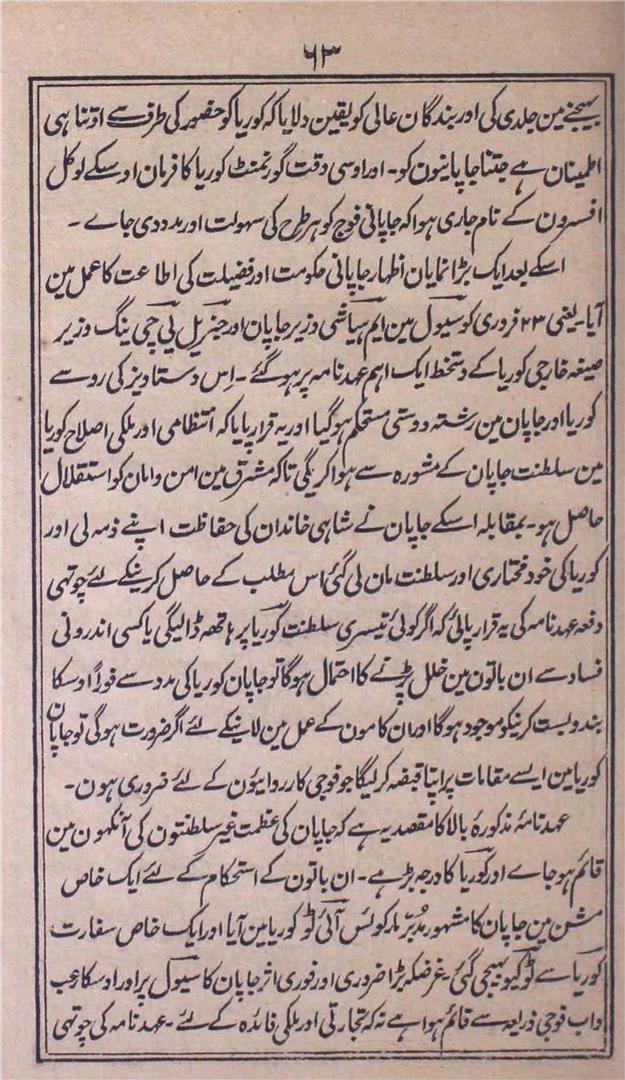 ۶۳
بہیجنے مین جلدی کی اور بندگان عالی کو یقین دلایا کہ کوریا کو حضور کی طرف سے اوتنا ہی
اطمینان ہے جتنا جاپانیون کو۔ اور اوسی وقت گورنمنٹ کوریا کا فرمان اوسکے لوکل
افسرون کے نام جاری ہوا کہ جاپانی فوج کو ہر طرح کی سہولت اور مدد دی جاے ۔
اسکے بعد ایک بڑا نمایان اظہار جاپانی حکومت اور فضیلت کی اطاعت کا عمل مین
آیا۔ یعنی ۲۳ فروری کو سیول مین ایم ہیاشی وزیر جاپان اور جنریل یی چی ینگ وزیر
صیغہ خارجی کوریا کے دستخط ایک اہم عہدنامہ پر ہو گئے ۔ اِس دستاویز کی رو سے
کوریا اور جاپان مین رشتہ دوستی مستحکم ہوگیا اور یہ قرار پایا کہ انتظامی اور ملکی اصلاح کوریا
مین سلطنت جاپان کے مشورہ سے ہوا کریگی تاکہ مشرق مین امن و امان کو استقلال
حاصل ہو۔ بمقابلہ اسکے جاپان نے شاہی خاندان کی حفاظت اپنے ذمہ لی اور
کوریا کی خود مختاری اور سلطنت مان لی گئی اس مطلب کے حاصل کرینکے لئے چوتہی
دفعہ عہدنامہ کی یہ قرار پائی کہ اگر کوئی تیسری سلطنت کوریا پر ہاتھہ ڈالیگی یا کسی اندرونی
فساد سے ان باتون مین خلل پڑنے کا احتمال ہوگا تو جاپان کوریا کی مدد سے فوراً اوسکا
بندوبست کرنیکو موجود ہوگا اور ان کامون کے عمل مین لاینکے لئے اگر ضرورت ہوگی تو جاپان
کوریا مین ایسے مقامات پر اپنا قبضہ کرلیگا جو فوجی کارروائیون کے لئے ضروری ہون ۔
عہدنامۂ مذکورۂ بالا کا مقصد یہ ہے کہ جاپان کی عظمت غیر سلطنتون کی آنکہون مین
قائم ہو جاے اور کوریا کا درجہ بڑہے ۔ ان باتون کے استحکام کے لئے ایک خاص
مشن مین جاپان کا مشہور مدُبّر مارکوئس آئی ٹو کوریا مین آیا اور ایک خاص سفارت
کوریا سے ٹوکیو بہیجی گئی ۔ غرضکہ بڑا ضروری اور فوری اثر جاپان کا سیول پر اور اوسکا رعب
داب فوجی ذریعہ سے قائم ہوا ہے نہ کہ تجارتی اور ملکی فائدہ کے لئے ۔ عہدنامہ کی چوتہی